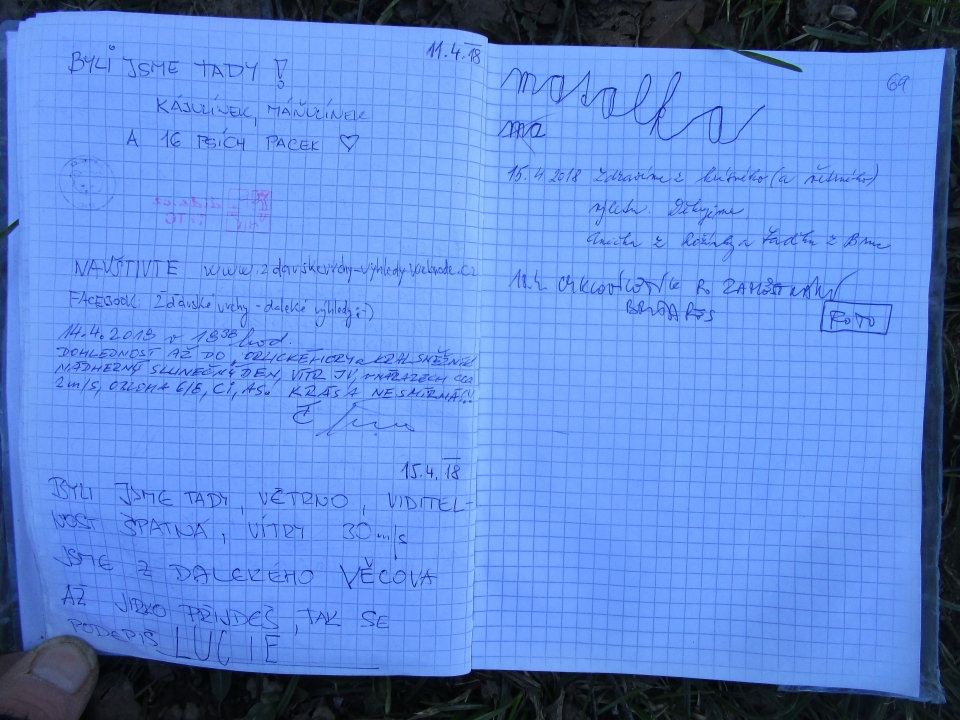 11.4.18
BYLI JSME TADY!
KÁJULÍNEK, MÁŇULÍNEK
A 16 PSÍCH PACEK ♡
NAVŠTIVTE www.zdarskevrchy-vyhledy.webnode.cz
FACEBOOK: Žďárské vrchy - daleké výhledy :-)
14.4.2018 v 18³⁸ hod.
DOHLEDNOST AŽ DO, ORLICKÉ HORY a KRÁL. SNĚŽNÍK
NÁDHERNÝ SLUNEČNÝ DEN, VÍTR JV, v NÁRAZECH cca
2 m/s, OBLOHA 6/8, Ci, As. KRÁSA NESMÍRNÁ!
15.4.18
BYLI JSME TADY, VĚTRNO, VIDITEL-
NOST ŠPATNÁ, VÍTR 30 m/s
JSME Z DALEKÉHO VĚCOVA
AŽ JIRKO PŘIJDEŠ, TAK SE
PODEPIŠ LUCIE
69
matalka
ma
15.4.2018 Zdravíme z krásného (a větrného)
výletu. Děkujeme
Anička z a Laďka z Brna
FOTO